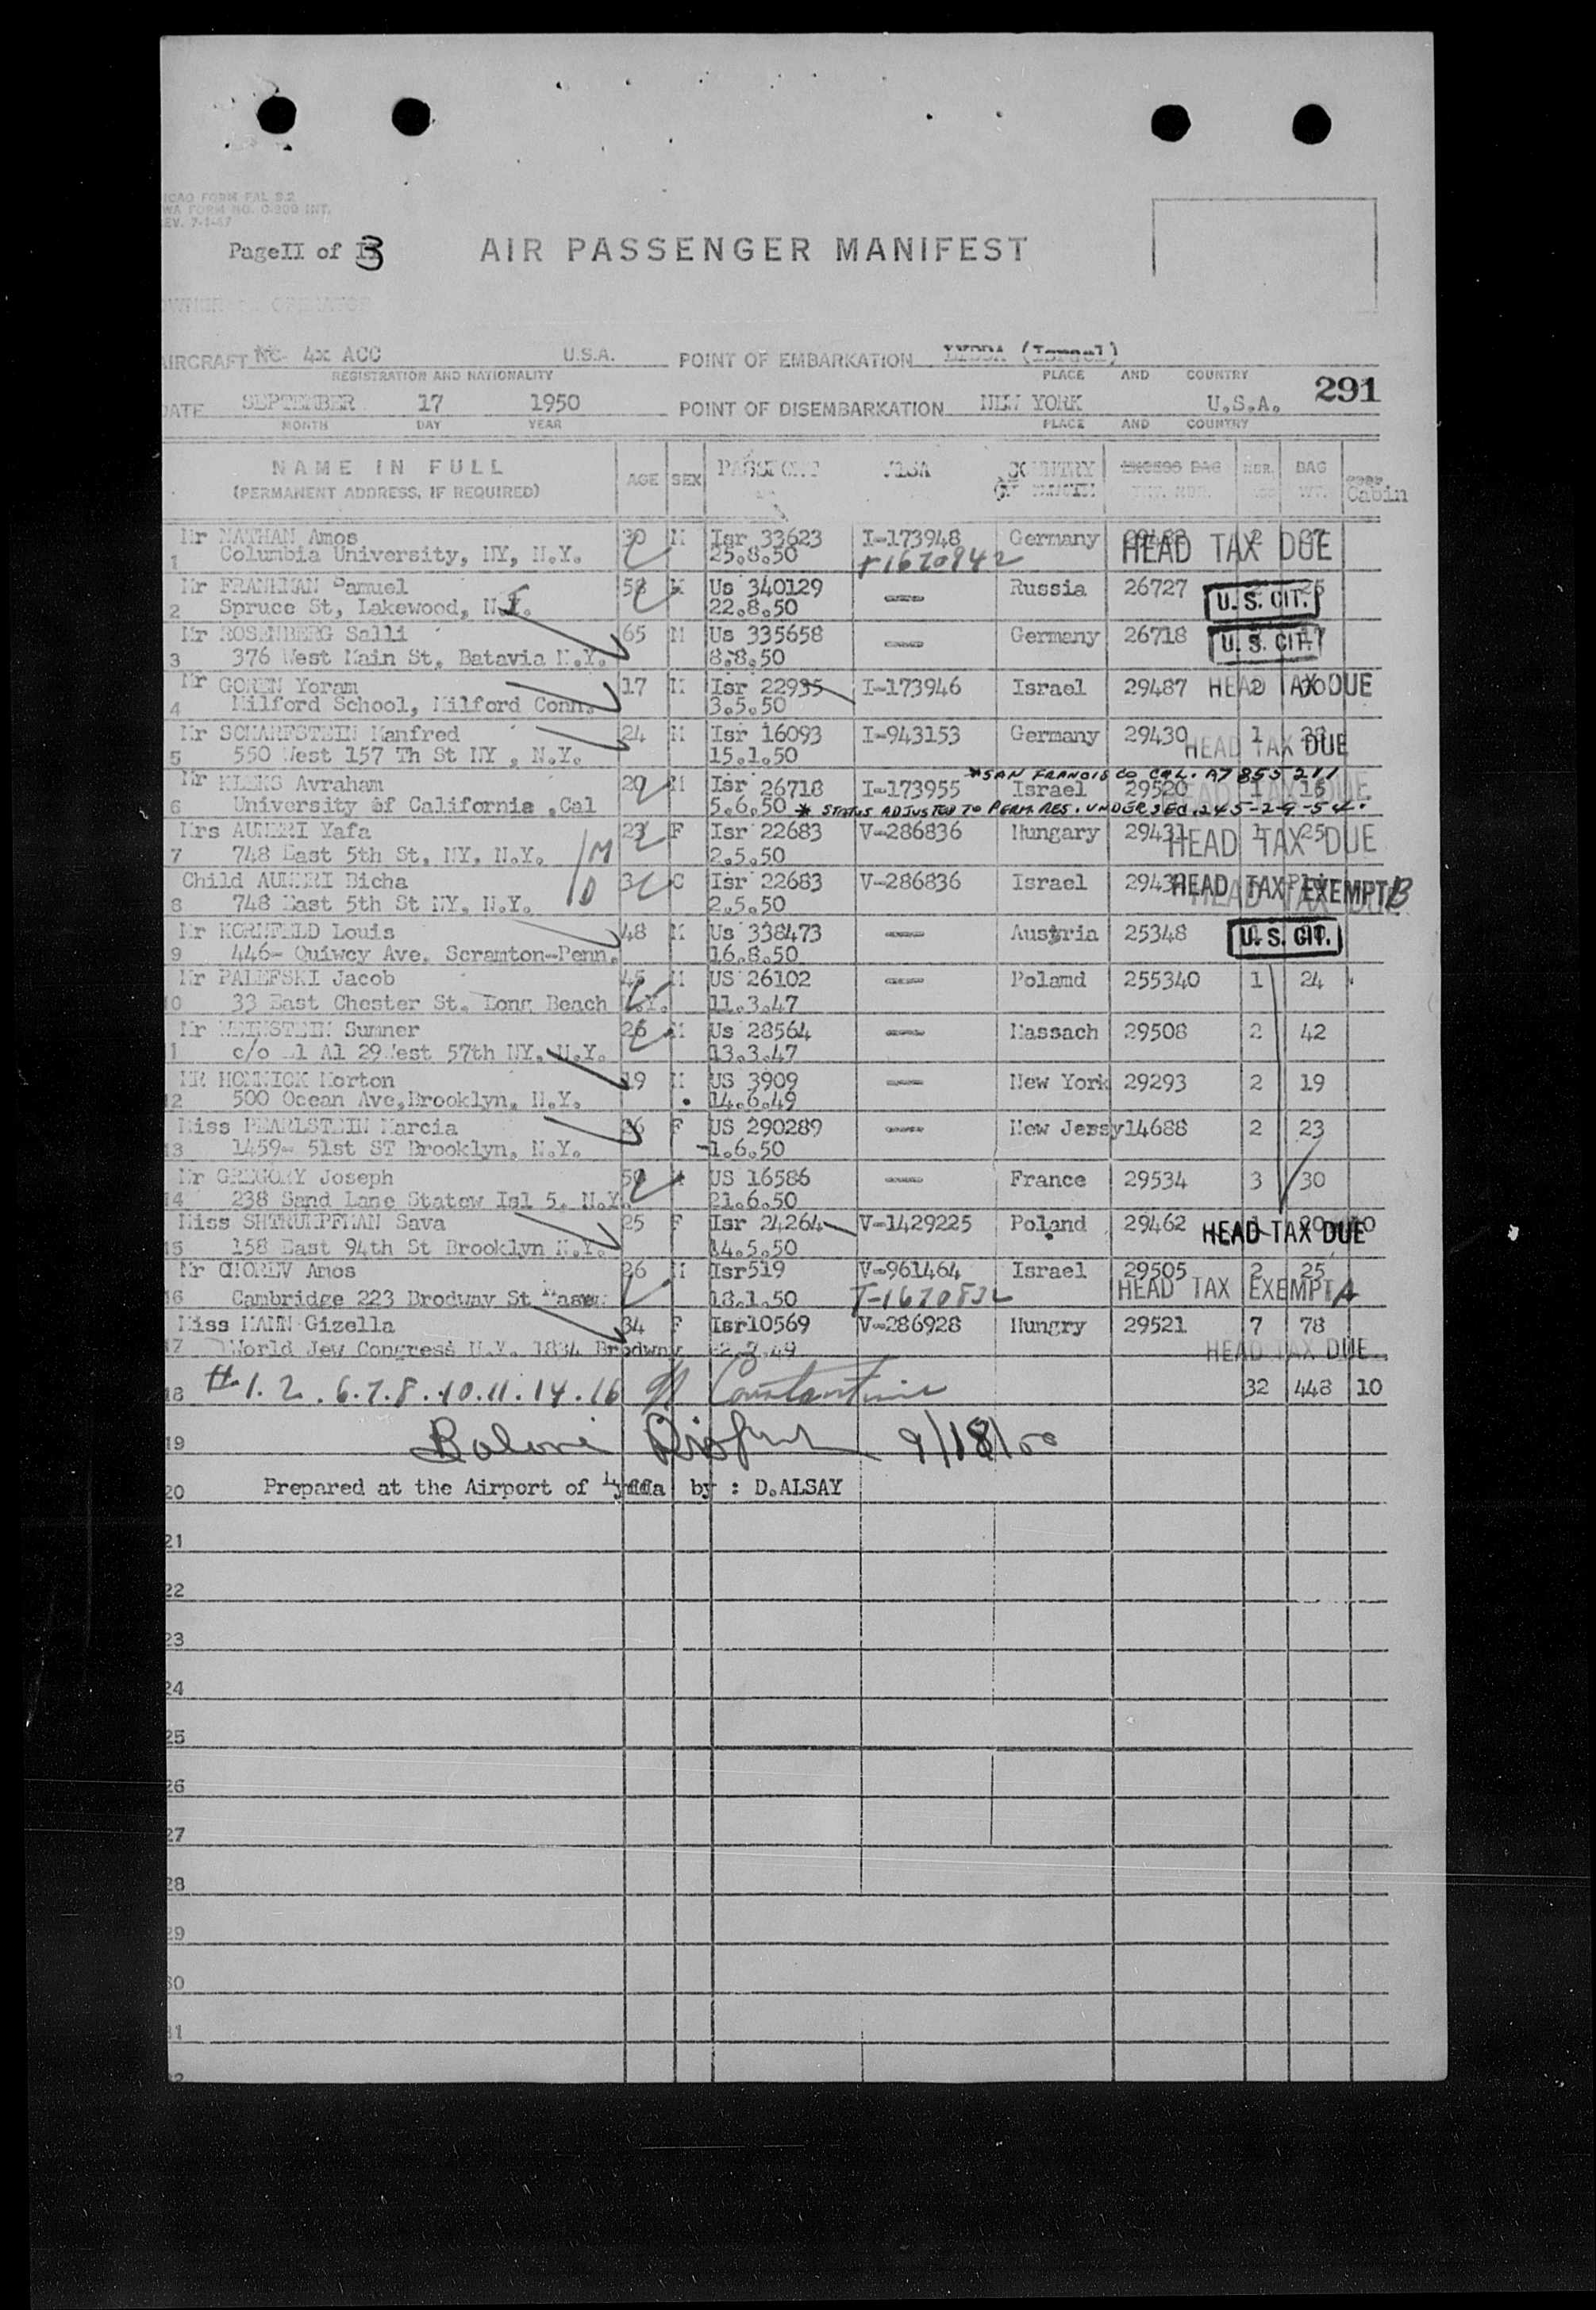 ICAO FORM FAL 2.2
WA FORM NO. C-200 INT.
EV. 7-1-47
PageII of 3
AIR PASSENGER MANIFEST
AIRCRAFT NC- 4x ACC U.S.A. POINT OF EMBARKATION LYDDA (Israel)
REGISTRATION AND NATIONALITY PLACE AND COUNTRY
291
DATE SEPTEMBER 17 1950 POINT OF DISEMBARKATION NEW YORK U.S.A.
MONTH DAY YEAR PLACE AND COUNTRY
NAME IN FULL AGE SEX PASSPORT VISA COUNTRY EXCESS BAG NBR. BAG
(PERMANENT ADDRESS, IF REQUIRED) WT. Cabin
Mr NATHAN Amos 30 M Isr 33623 I-173948 Germany 2
1 Columbia University, NY, N.Y. 25.8.50 HEAD TAX DUE
Mr Samuel 58 M Us 340129 -- Russia 26727 25
2 Spruce St, Lakewood, N.J. 22.8.50 U. S. CIT.
Mr ROSENBERG Salli 65 M Us 335658 -- Germany 26718
3 376 West Main St. Batavia N.Y. 8.8.50 U. S. CIT.
Mr GOREN Yoram 17 M Isr 22935 I-173946 Israel 29487 2 HEAD TAX DUE
4 Milford School, Milford Conn. 3.5.50
Mr SCHARFSTEIN Manfred 24 M Isr 16093 I-943153 Germany 29430 1 HEAD TAX DUE
5 550 West 157 Th St NY , N.Y. 15.1.50
*SAN FRANCISCO CAL. A7 853 211
Mr Avraham 20 M Isr 26718 I-173955 Israel 29520 1 16 HEAD TAX DUE
6 University of California .Cal 5.6.50 * STATUS ADJUSTED TO PERM. RES. UNDER SEC. 245-2-9-54.
Mrs AUNERI Yafa 23 F Isr 22683 V-286836 Hungary 29431 1 25 HEAD TAX DUE
7 748 East 5th St, NY, N.Y. 2.5.50
Child AUNERI Bicha 3 C Isr 22683 V-286836 Israel HEAD TAX EXEMPT B
8 748 East 5th St NY, N.Y. 2.5.50
Mr KORNFELD Louis 48 M Us 338473 -- Austria 25348 U. S. CIT.
9 446- Quiwcy Ave. Scramton-Penn. 16.8.50
Mr PALEFSKI Jacob 45 M US 26102 -- Poland 255340 1 24
10 33 East Chester St. Long Beach N.Y. 11.3.47
Mr WEINSTEIN Sumner 26 M Us 28564 -- Massach 29508 2 42
11 c/o El Al 29West 57th NY. N.Y. 13.3.47
MR Morton 19 M US 3909 -- New York 29293 2 19
12 500 Ocean Ave,Brooklyn, N.Y. 14.6.49
Miss PEARLSTEIN Marcia F US 290289 -- New Jersy 14688 2 23
13 1459- 51st ST Brooklyn, N.Y. 1.6.50
Mr GREGORY Joseph US 16586 -- France 29534 3 30
14 238 Sand Lane Statew Isl 5. N.Y. 21.6.50
Miss SHTRUMPFMAN Sava 25 F Isr 24264 V-1429225 Poland 29462 HEAD TAX DUE
15 158 East 94th St Brooklyn N.Y. 14.5.50
Mr CHOREV Amos 26 M Isr519 V-961464 Israel 29505 2 25
16 Cambridge 223 Brodway St 18.1.50 HEAD TAX EXEMPT A
Miss MANN Gizella 34 F Isr10569 V-286928 Hungry 29521 7 78
17 World Jew Congress N.Y. 1834 Brodway 2.7.49 HEAD TAX DUE
18 #1.2.6.7.8.10.11.14.16 32 448 10
19 9/18/50
20 Prepared at the Airport of Lydda by : D.ALSAY
21
22
23
24
25
26
27
28
29
30
31